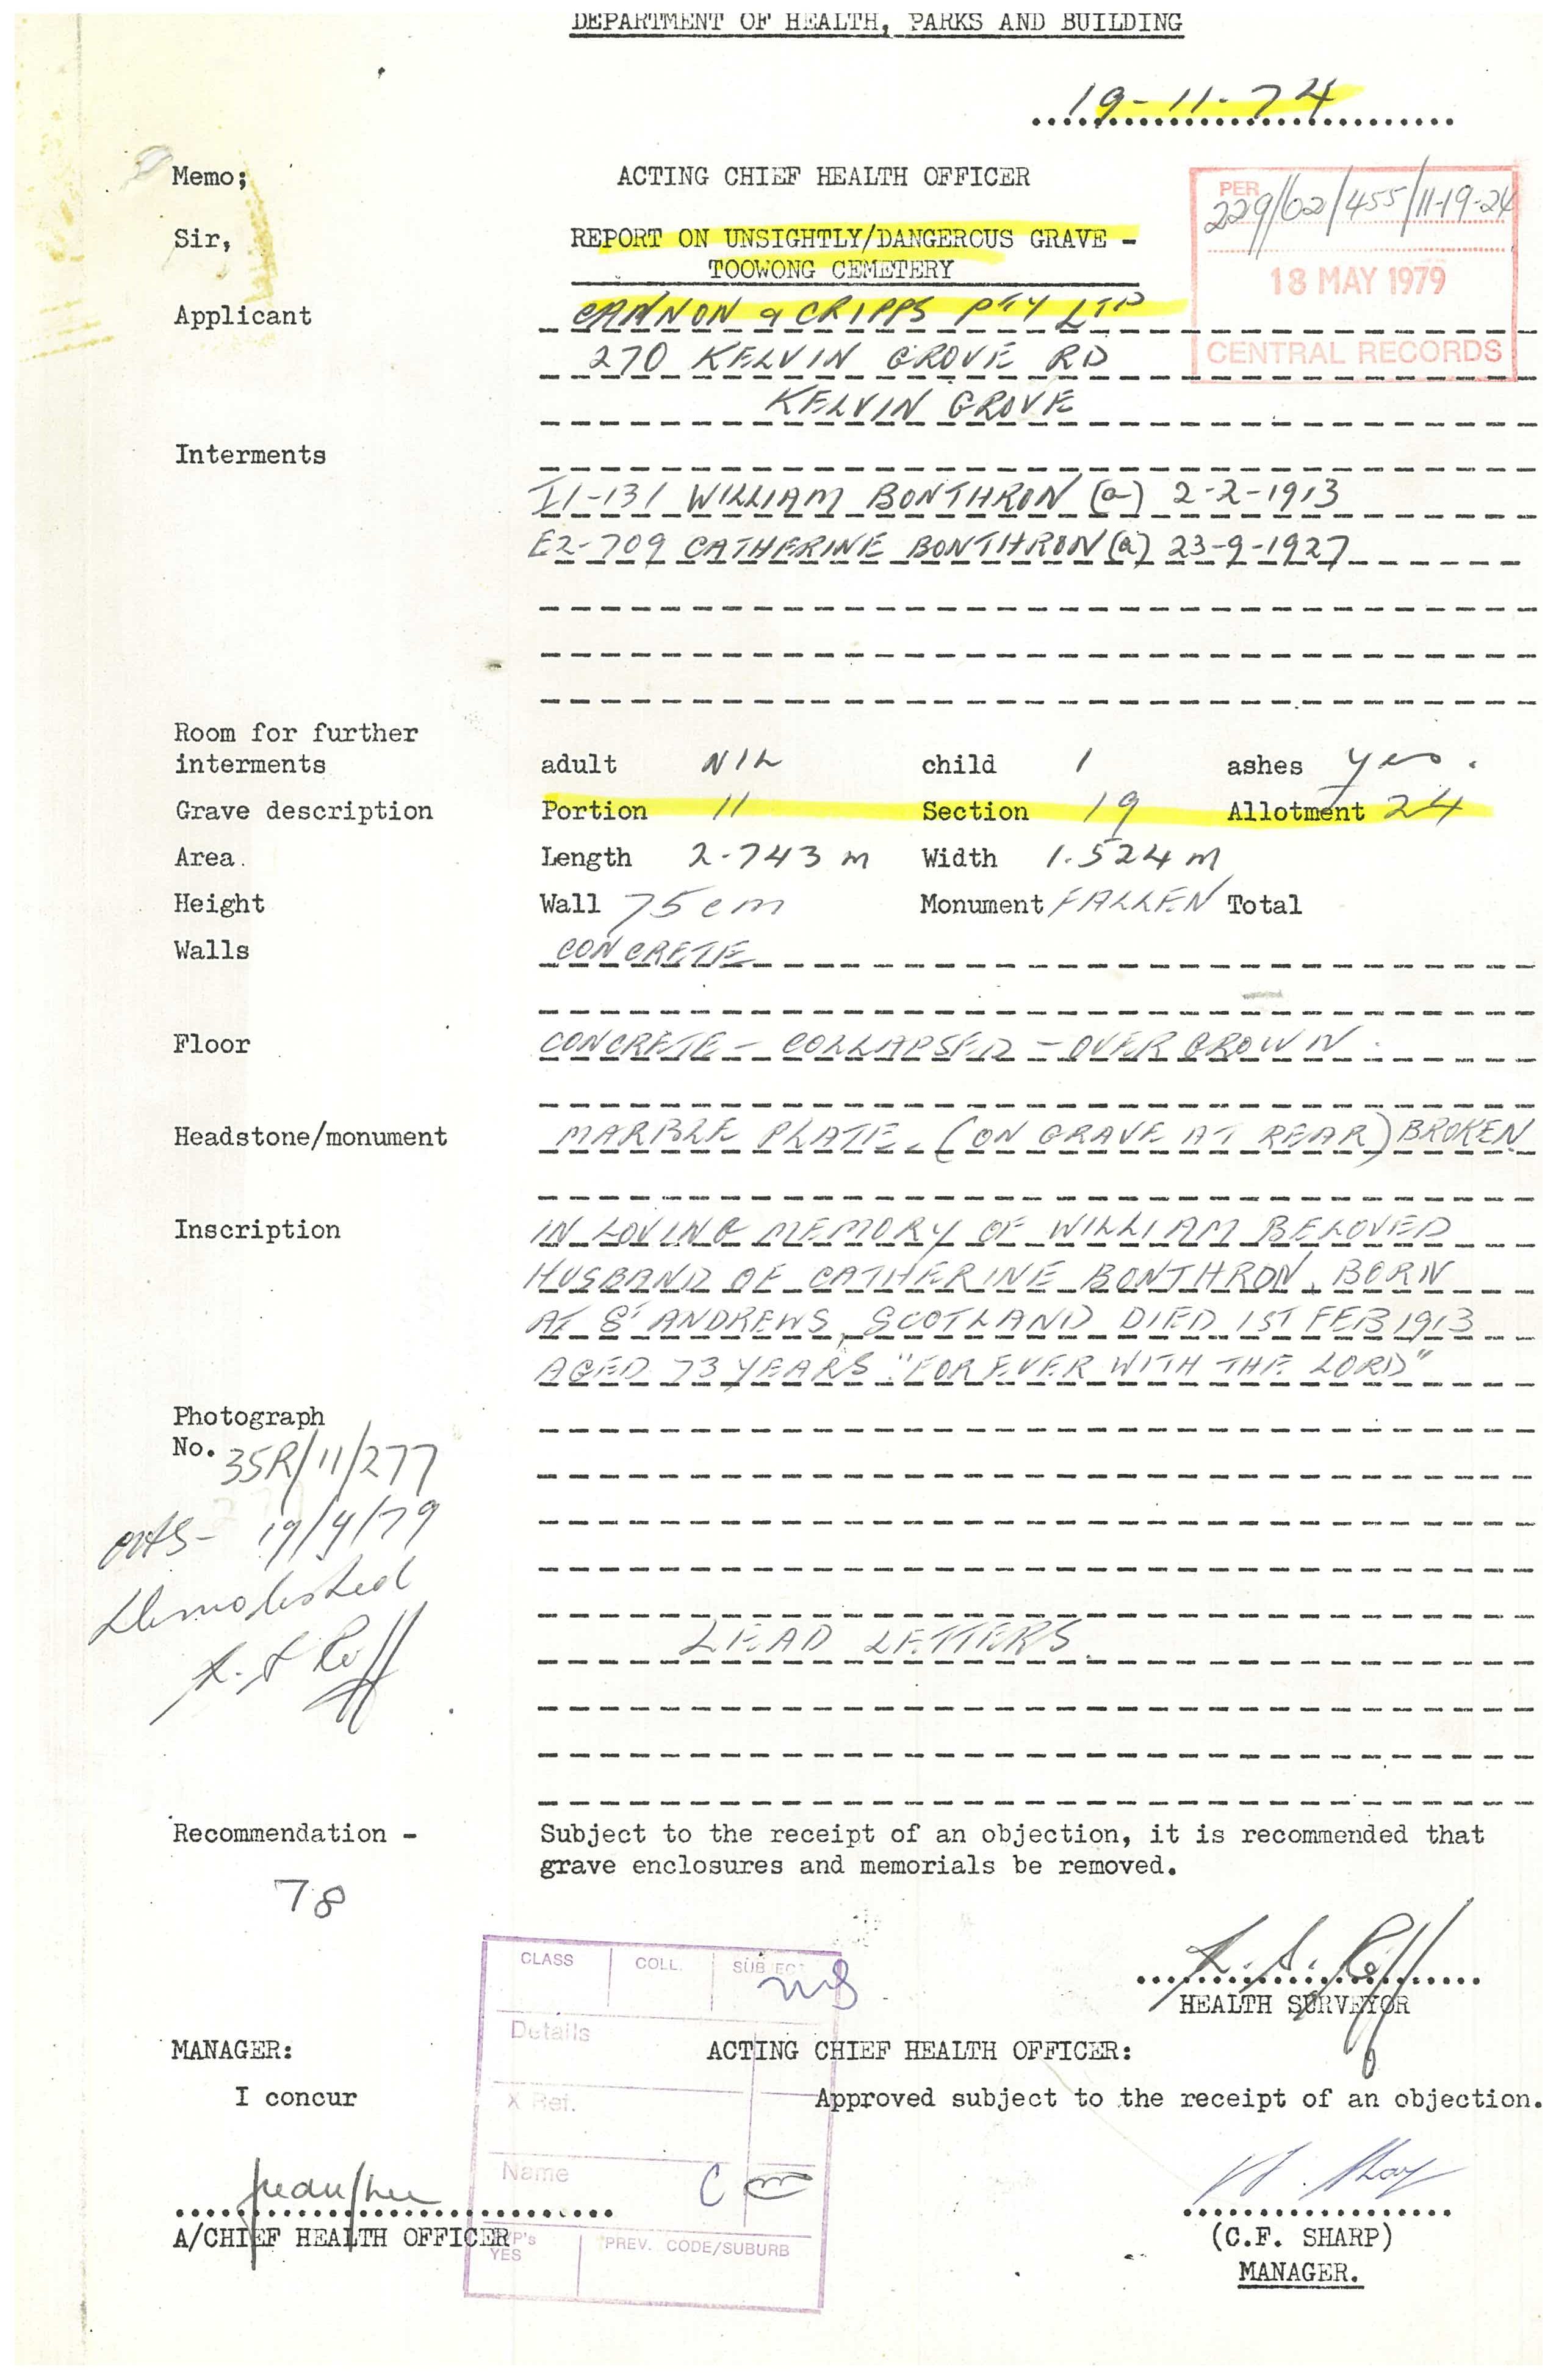 DEPARTMENT OF HEALTH, PARKS AND BUILDING
19-11-74
Memo; ACTING CHIEF HEALTH OFFICER
PER
229/02/455/11-19-24
18 MAY 1979
CENTRAL RECORDS
Sir, REPORT ON UNSIGHTLY/DANGERCUS GRAVE -
TOOWONG CEMETERY
Applicant CANNON & CRIPPS PTY LTD
270 KELVIN GROVE RD
KELVIN GROVE
Interments
I1-131 WILLIAM BONTHRON (a) 2-2-1913
E2-709 CATHERINE BONTHRON (a) 23-9-1927
Room for further
interments adult NIL child 1 ashes yes.
Grave description Portion 11 Section 19 Allotment 24
Area. Length 2.743 m Width 1.524 m
Height Wall 75 cm Monument FALLEN Total
Walls CONCRETE
Floor CONCRETE - COLLAPSED - OVER GROWN
Headstone/monument MARBLE PLATE. (ON GRAVE AT REAR) BROKEN
Inscription IN LOVING MEMORY OF WILLIAM BELOVED
HUSBAND OF CATHERINE BONTHRON. BORN
AT ST ANDREWS, SCOTLAND DIED 1ST FEB 1913
AGED 73 YEARS "FOR EVER WITH THE LORD"
Photograph
No. 35R/11/277
19/4/79
Demolished
LEAD LETTERS
Recommendation - Subject to the receipt of an objection, it is recommended that
grave enclosures and memorials be removed.
78
CLASS COLL. SUBJECT
HEALTH SURVEYOR
Details
MANAGER: ACTING CHIEF HEALTH OFFICER:
I concur Approved subject to the receipt of an objection.
X Ref.
Name
A/CHIEF HEALTH OFFICER
YES PREV. CODE/SUBURB
(C.F. SHARP)
MANAGER.